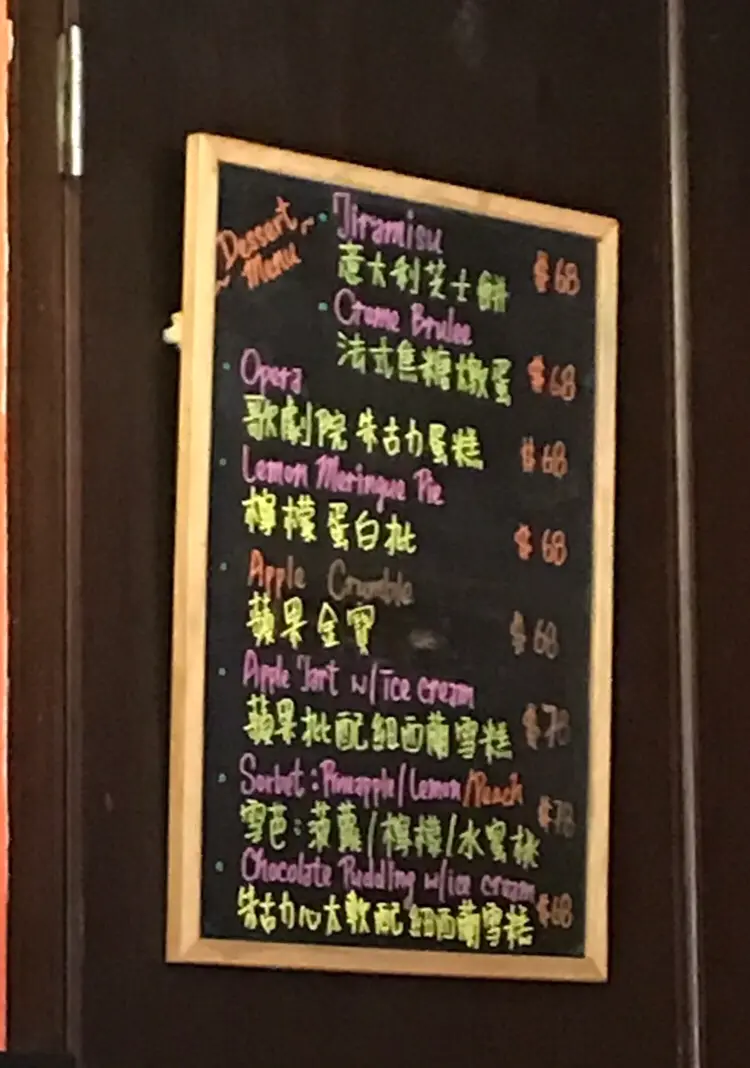 Dessert
Menu
Tiramisu
意大利芝士餅 $68
Creme Brulee
法式焦糖燉蛋 $68
Opera
歌劇院朱古力蛋糕 $68
Lemon Meringue Pie
檸檬蛋白批 $68
Apple Crumble
蘋果金寶 $68
Apple Tart w/ice cream
蘋果批配細西蘭雪糕 $78
Sorbet: Pineapple/Lemon/Peach
雪芭:菠蘿/檸檬/水蜜桃 $78
Chocolate Pudding w/ice cream
朱古力心太軟配細西蘭雪糕 $68